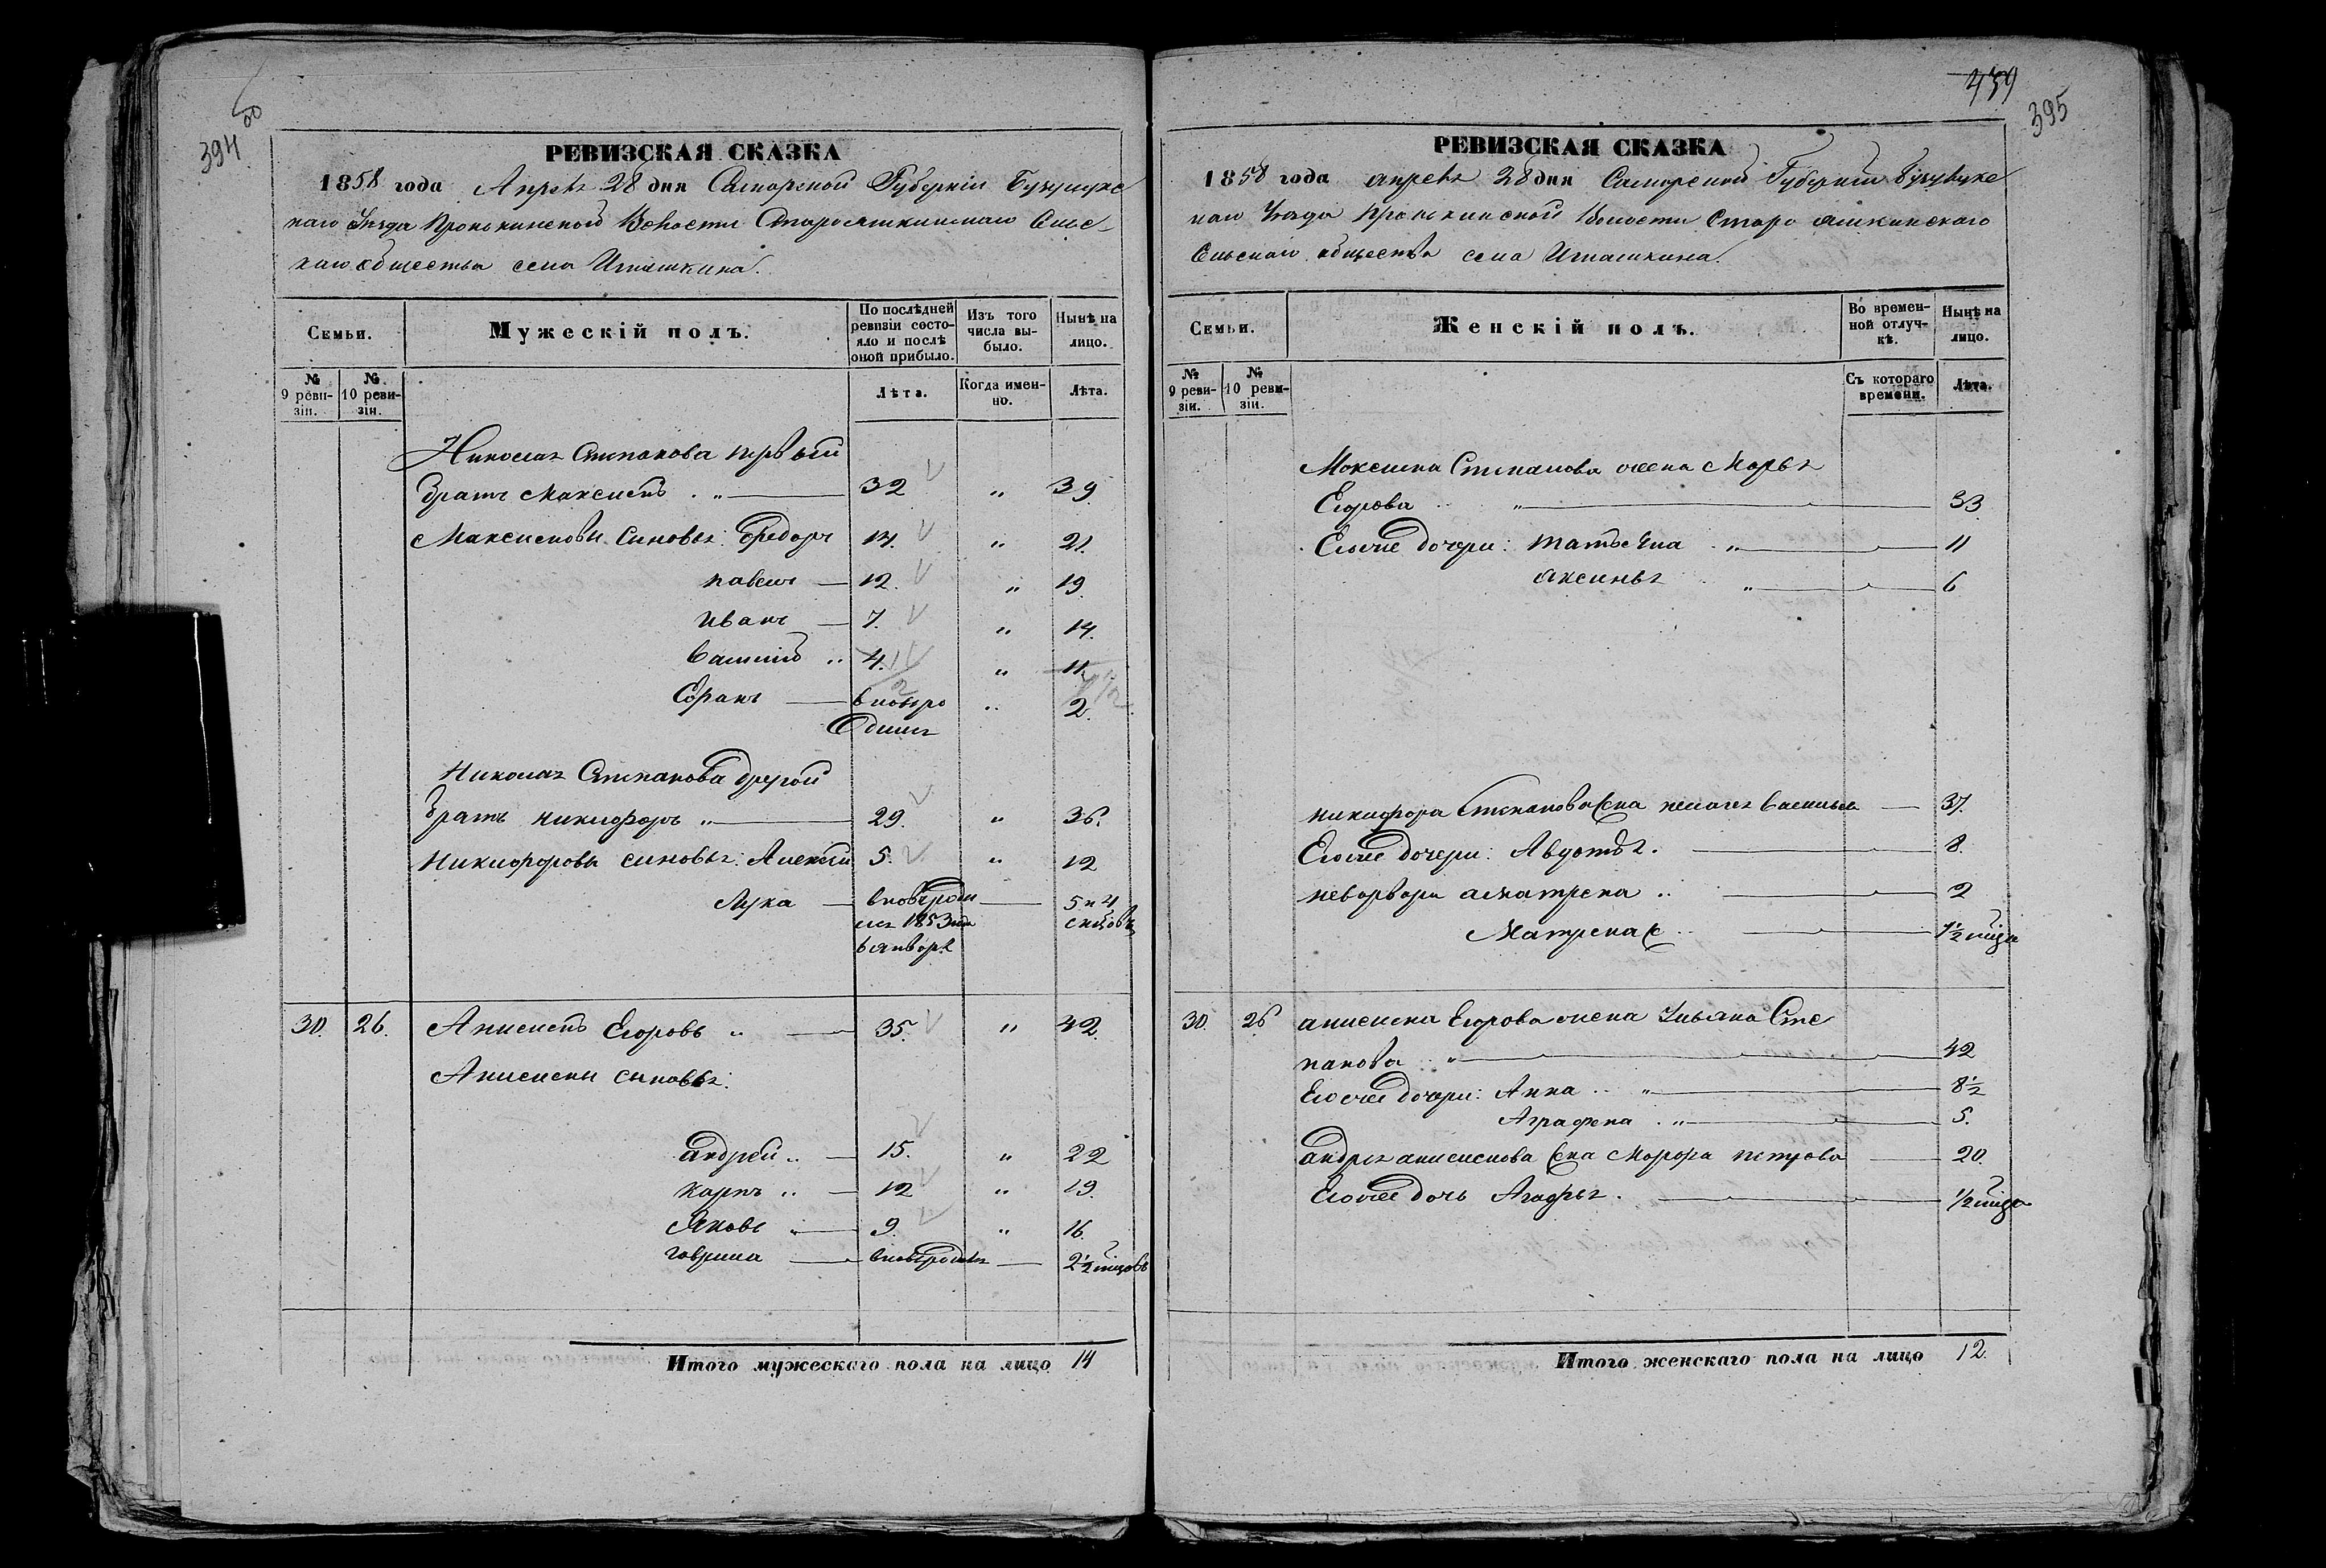 394
РЕВИЗСКАЯ СКАЗКА
1858 года Апреля 28 дня Самарской Губерніи Бузулукс
каго Уѣзда Пронькинской Волости Староашкинскаго Сельс
каго общества села Ипашкина.
Семьи.
Мужескій полъ.
По послѣдней ревизіи состояло и послѣ оной прибыло.
Изъ того числа выбыло.
Нынѣ на лицо.
№ 9 ревизіи.
№ 10 ревизіи.
Лѣта.
Когда именно.
Лѣта.
Николая Степанова первый
братъ Максимъ . „ 32 „ 39.
Максимовы синовья: Федоръ 14. „ 21.
павелъ 12. „ 19.
Иванъ 7. „ 14.
Василий „ 4. „ 11.
Софанъ вновьро „ 2.
дился
Николая Степанова другой
братъ никифоръ „ 29. „ 36.
Никифоровы синовья: Алексей 5. „ 12
Лука вновьроди 5 и 4
лся 1853 года
в январѣ
30. 26. Анисимъ Егоровъ „ 35. „ 42.
Анисимы сыновья:
андрей „ 15. „ 22
карпъ „ 12 „ 19.
Яковъ „ 9. „ 16.
гаврила вновьродился 2 1/2 мѣцовъ
Итого мужескаго пола на лицо 14
459
395
РЕВИЗСКАЯ СКАЗКА
1858 года апреля 28 дня Самарской Губерніи Бузулукс
каго Уѣзда Пронькинской Волости Старо ашкинскаго
Сельскаго общества села Ипашкина.
Семьи.
Женскій полъ.
Во временной отлучкѣ.
Нынѣ на лицо.
№ 9 ревизіи.
№ 10 ревизіи.
Съ котораго времени.
Лѣта.
Максима Степанова жена Марья
Егорова „ 33.
Егоже дочери: татьяна „ 11
аксинья „ 6
никифора Степанова жена пелагея Васильева 37.
Егоже дочери: Авдотья . 8.
2
Матрена 1 1/2 мѣця
30. 26 анисима Егорова жена Ульяна Сте
панова „ 42
Егоже дочери: Анна „ 8 1/2
Аграфена . „ 5.
андрея анисимова жена Марфа петрова 20.
Егоже дочь Агафья . 1/2 мѣця
Итого женскаго пола на лицо 12.